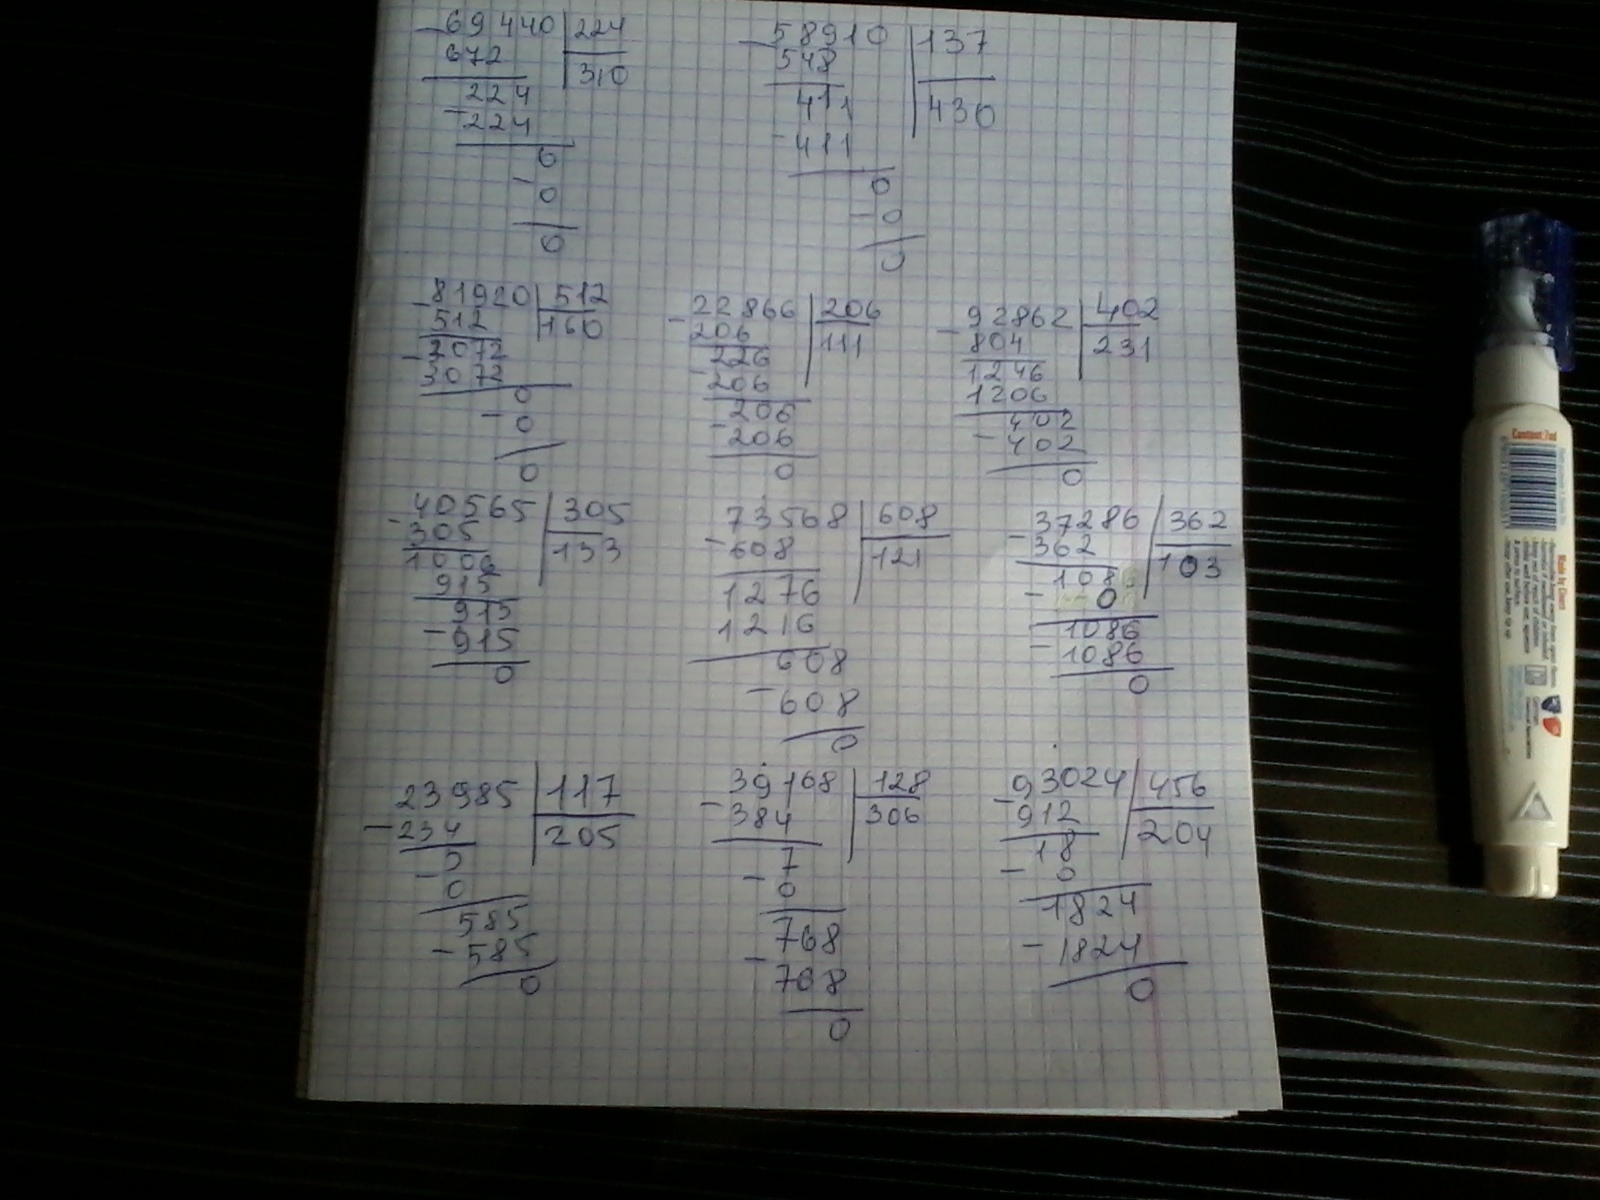 69440 224
- 672 310
224
- 224
0
- 0
0
58910 137
- 548 430
411
- 411
0
- 0
0
81920 512
- 512 160
3072
- 3072
0
- 0
0
22866 206
- 206 111
226
- 206
206
- 206
0
92862 402
- 804 231
1246
1206
402
- 402
0
40565 305
- 305 133
1006
915
915
- 915
0
73568 608
- 608 121
1276
1216
608
- 608
0
37286 362
- 362 103
108
- 0
1086
- 1086
0
23985 117
- 234 205
5
- 0
585
- 585
0
39168 128
- 384 306
7
- 0
768
- 768
0
93024 456
- 912 204
18
- 0
1824
- 1824
0
Content: 7ml
Made by Client